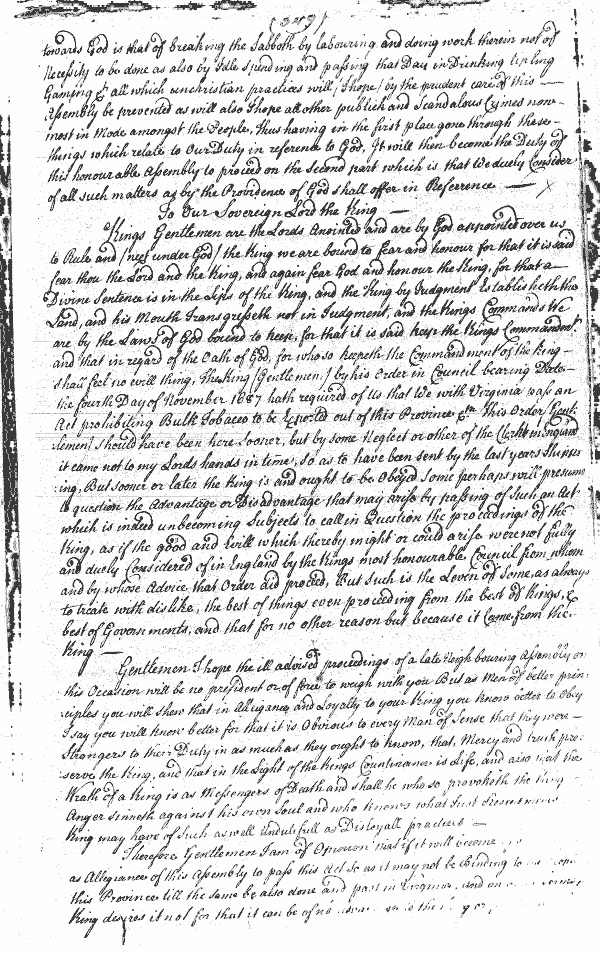 towards God is that of breaking the Sabboth by labouring and doing work therein not of
Necessity to be done as also by Idle spending and passing that Day in Drinking tipling
Gaming & all which unchristian practices will, I hope, by the prudent care of this
Assembly be prevented as will also I hope all other publick and Scandalous Crymes now
most in Mode amongst the People, Thus having in the first place gone through these
things which relate to Our Duty in reference to God, It will then become the Duty of
this honourable Assembly to proceed on the Second part which is that We duely Consider
of all such matters as by the Providence of God shall offer in Refference
To Our Sovereign Lord the King
Kings Gentlemen are the Lords Anointed and are by God appointed over us
to Rule and (next under God) the King we are bound to fear and honour for that it is said
fear thou the Lord and the King, and again fear God and honour the King, for that a
Divine Sentence is in the Lips of the King, and the King by Judgment Establisheth the
Land, and his Mouth Transgresseth not in Judgment, and the Kings Commands We
are by the Laws of God bound to keep, for that it is said keep the Kings Commandmt
and that in regard of the Oath of God, for whoso keepeth the Commandment of the King
shall feel no evill thing, The King (Gentlemen) by his Order in Council bearing Date
the fourth Day of November 1687 hath required of Us that We with Virginia pass an
Act prohibiting Bulk Tobacco to be Exported out of this Province &ca This Order (Gent
lemen) should have been here Sooner, but by some Neglect or other of the Clerks in England
it came not to my Lords hands in time, so as to have been sent by the last years Shipp
ing, But sooner or later the King is and ought to be Obeyed Some perhaps will presume
to question the Advantage or Disadvantage that may arise by passing of Such an Act
which is indeed unbecoming Subjects to call in Question the proceedings of the
King, as if the good and evill which thereby might or could arise were not fully
and duely Considered of in England by the Kings most honourable Council from whom
and by whose Advice that Order did proceed, But such is the Leven of Some, as always
to treate with dislike, the best of things even proceeding from the best of Kings, &
best of Governments, and that for no other reason but because it Came from the
King
Gentlemen I hope the ill advised proceedings of a late Neigh bouring Assembly on
this Occasion will be no president or of force to weigh with you But as Men of better prin
ciples you will shew that in Allegiance and Loyalty to your King you know better to Obey
I say you will know better for that it is Obvious to every Man of Sense that they were
Strangers to their Duty in as much as they ought to know, that, Mercy and truth pre
serve the King, and that in the Light of the Kings Countinance is Life, and also that the
Wrath of a King is as Messengers of Death and shall he who so provoketh the King
Anger sinneth against his own Soul and who knows what Just Resentments
King may have of Such as well undutifull as Disloyall practices
Therefore Gentlemen I am of Opinion that if it will become
as Allegiance of this Assembly to pass this Act so as it may not be binding to
this Province till the same be also done and past in Virginia, and on
King desires it not for that it can be of no